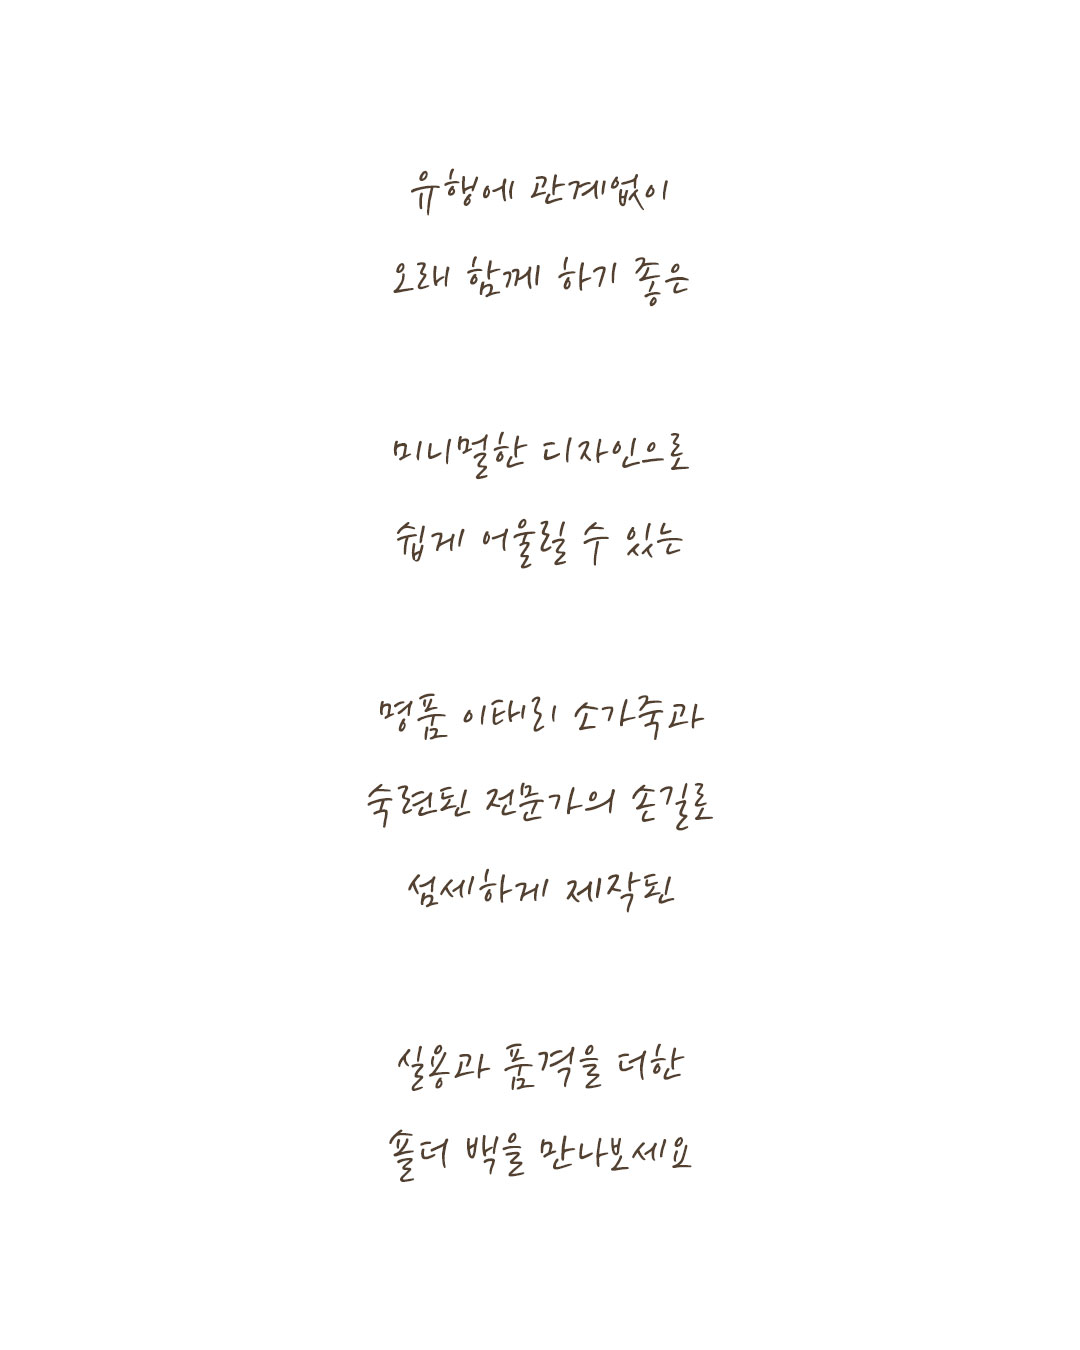 유행에 관계없이
오래 함께 하기 좋은
미니멀한 디자인으로
쉽게 어울릴 수 있는
명품 이태리 소가죽과
숙련된 전문가의 손길로
섬세하게 제작된
실용과 품격을 더한
숄더 백을 만나보세요